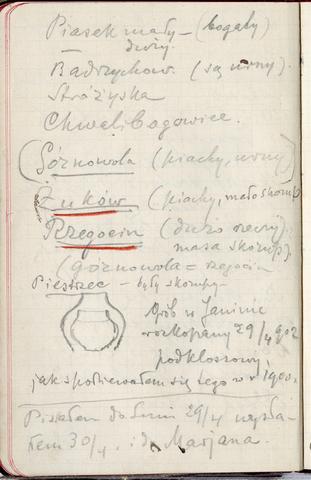 Piasek mały – (bogaty)
– duży.
Badrzychow. (są urny).
Stróżyska
Chwalibogowice.
(Górnowola (piachy, urny)
Żuków (piachy, mało skorup)
Rzegocin (dużo
masa skorup).
(górnowola = rzegocin
Piestrzec – były skorupy –
Grób w Janinie
rozkopany 29/4 902
podkloszowy,
jak spodziewałem się tego w r 1900.
Pisałem do 29/4 wysła-
łem 30/4. i do Marjana.